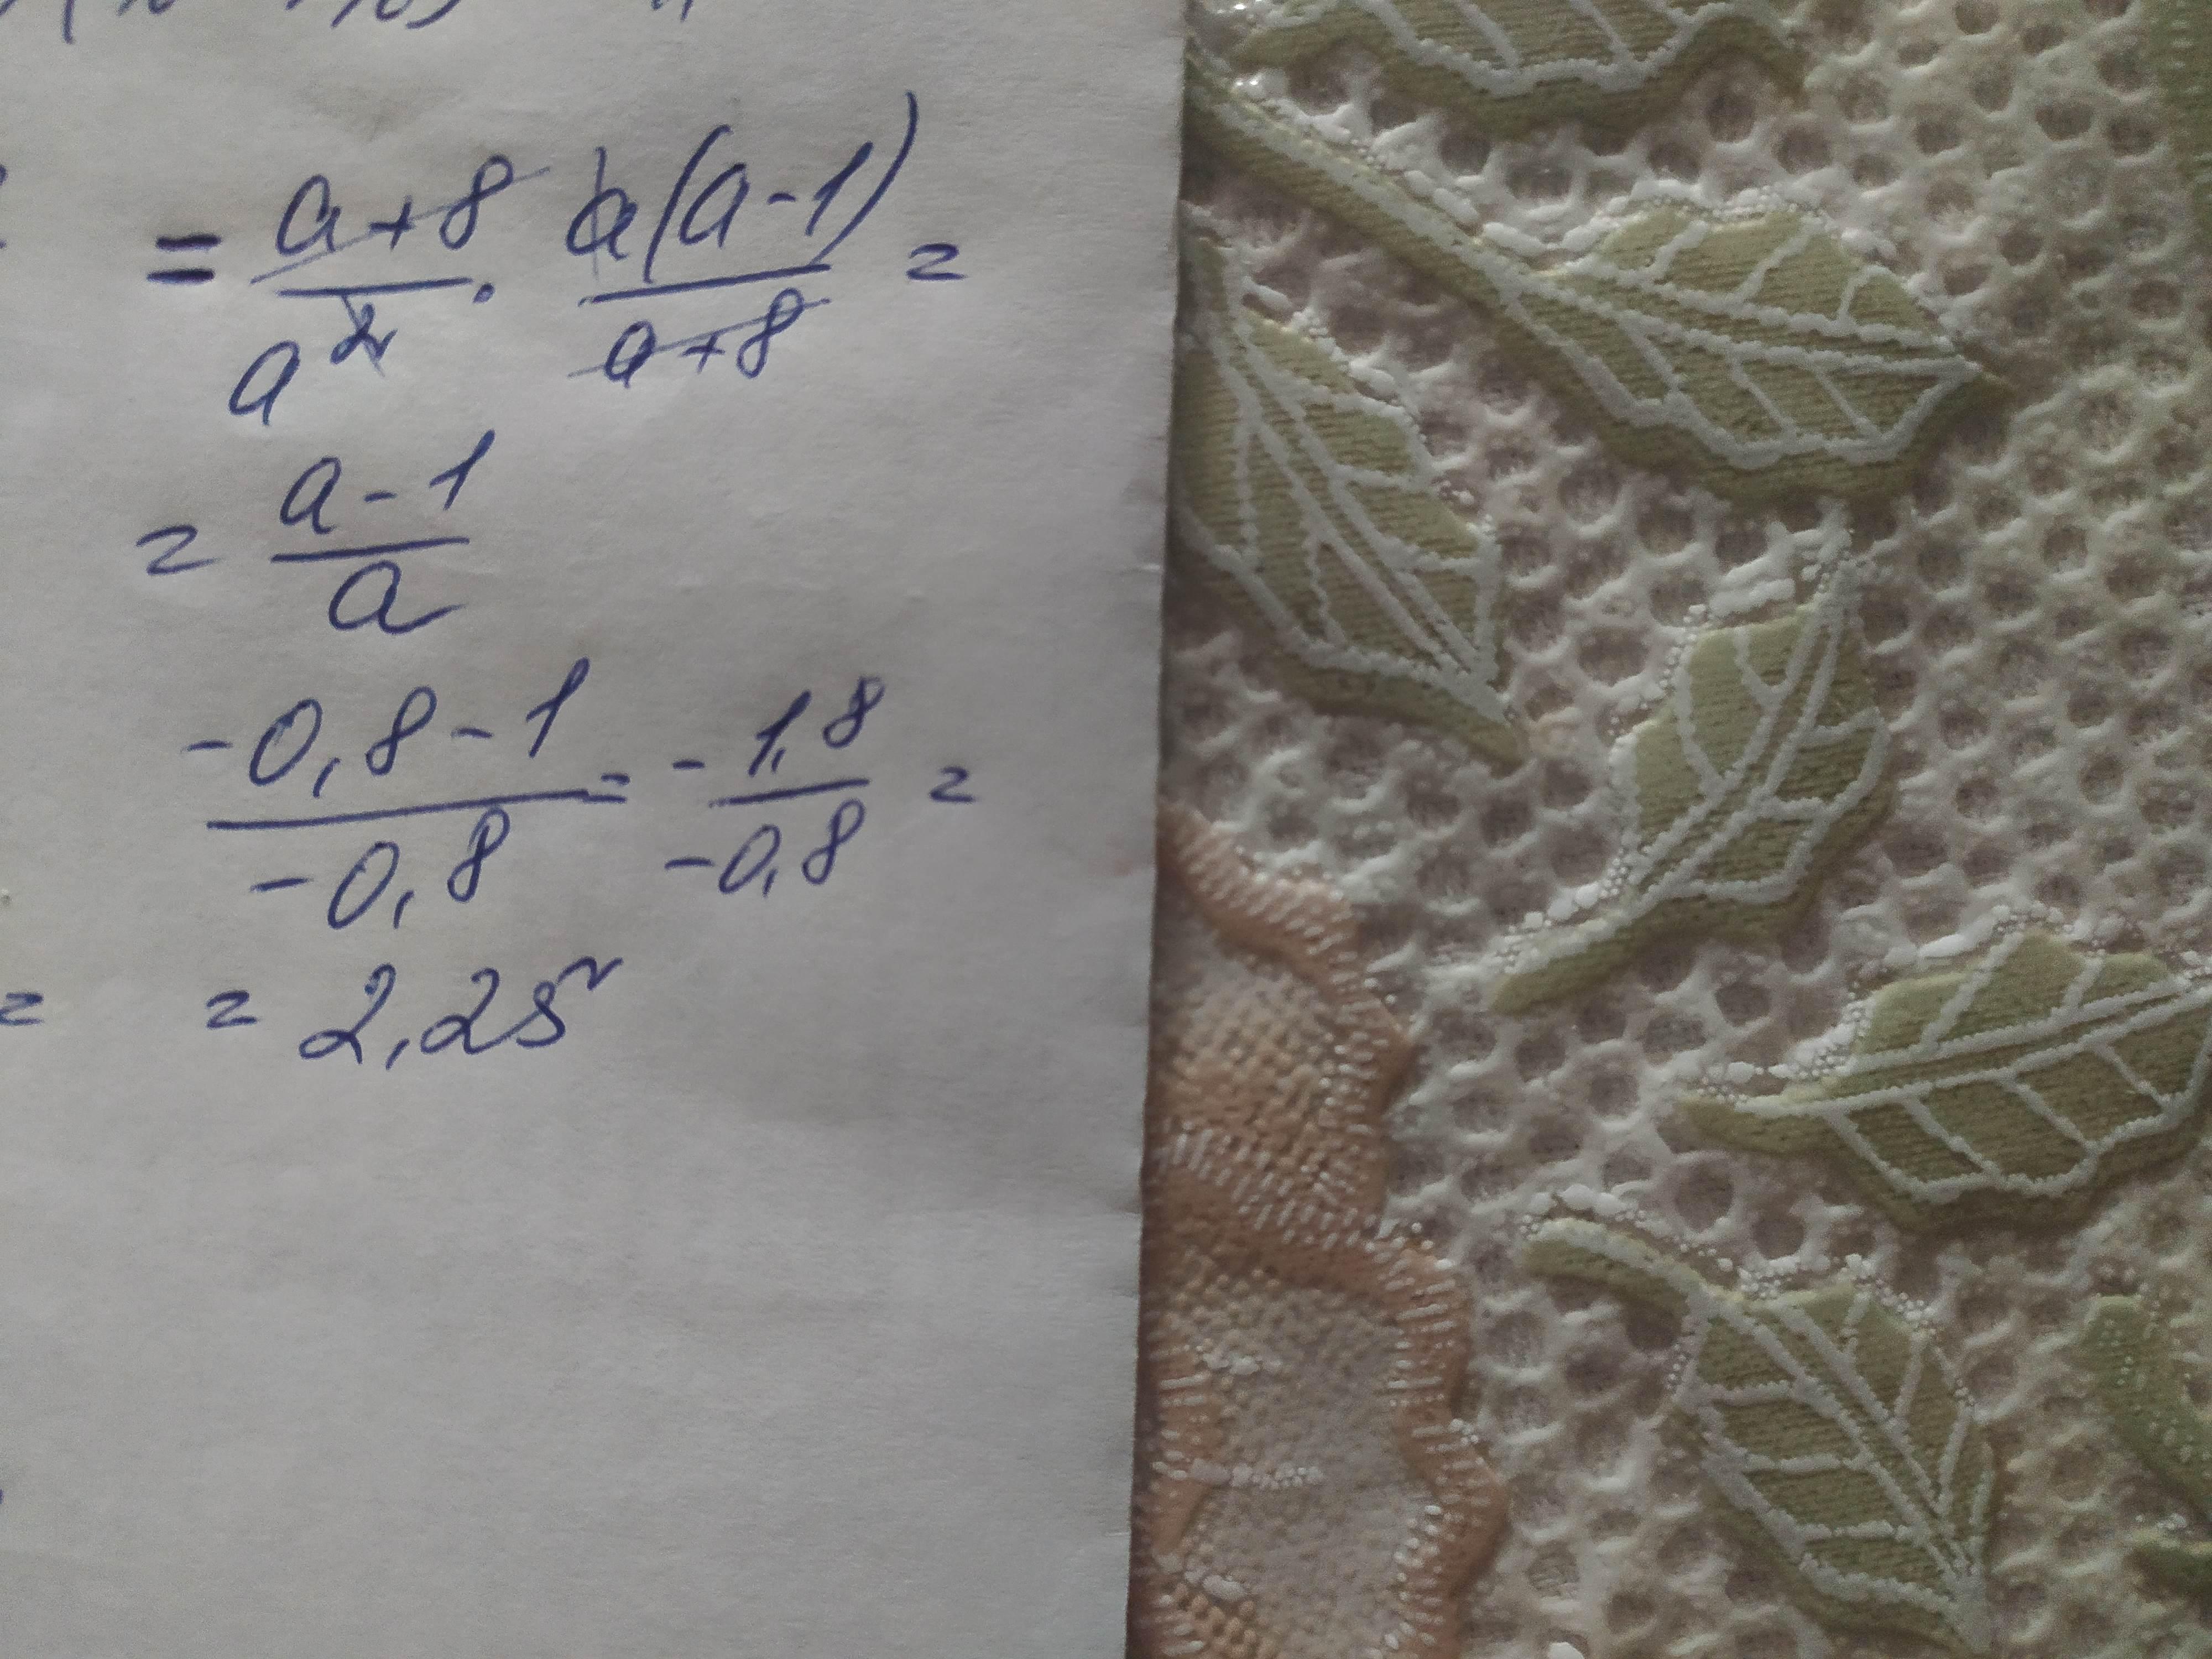 = a+8/a² · a(a-1)/a+8 =
= a-1/a
-0,8-1/-0,8 = -1,8/-0,8 =
= = 2,25